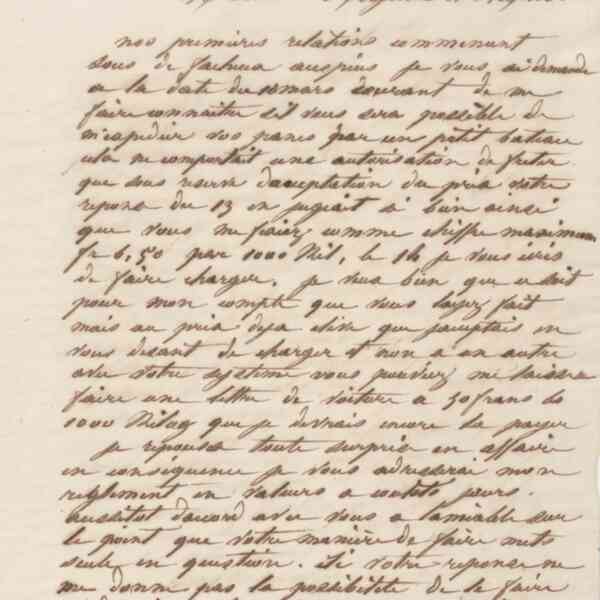 nos premières relations commencent
sous de facheux auspices je vous ai demandé
a la date du 10 mars courant de me
faire connaitre sil vous sera possible de
m'expedier vos par un petit bateau
cela ne comportait une autorisation de freter
que sous reserve dacceptation du prix votre
reponse du 13 en jugeait si bien ainsi
que vous me fixiez comme chiffre maximum
fr 6,50 par 1000 Kil, le 14 je vous ecris
de faire charger. je veux bien que ce soit
pour mon compte que vous layez fait
mais au prix deja elevé que jacceptais en
vous disant de charger et non a un autre
avec votre systeme vous pouviez me laisser
faire une lettre de voiture a 50 francs les
1000 Kilog que je devrais encore la payer
je repousse toute surprise en affaire
en conséquence je vous adresserai mon
reglement en valeurs a courts jours
aussitot daccord avec vous a lamiable sur
le point que votre manière de faire mets
seule en question. Si votre reponse ne
me donne pas la possibilité de le faire